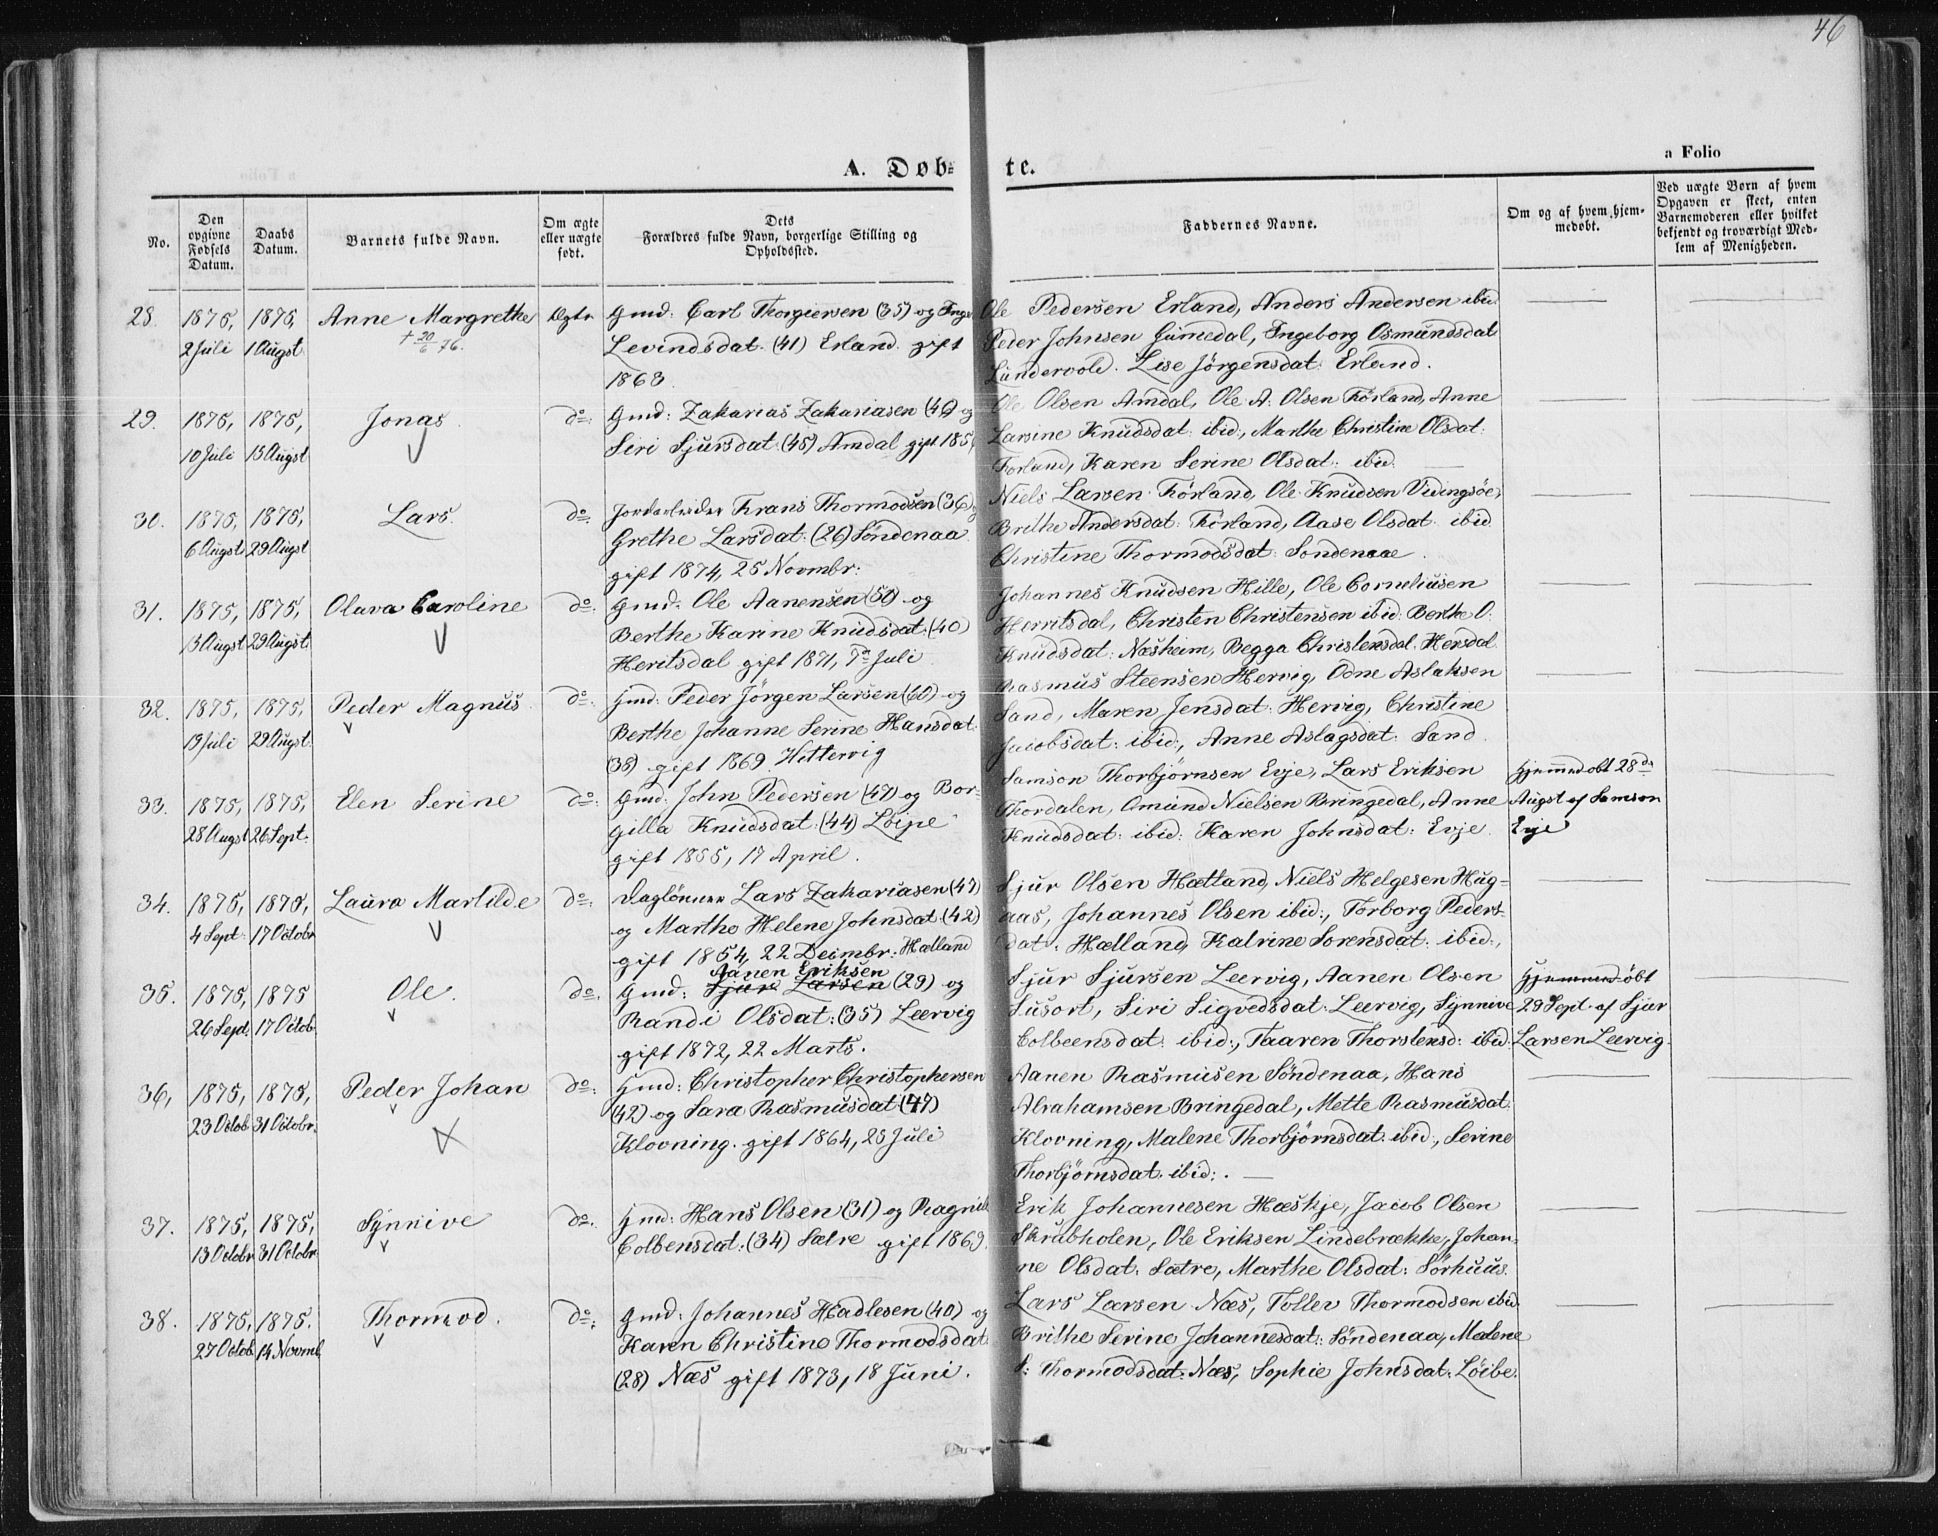 46
a Folio
A. Døb-
te.
No.
Den opgivne Fødsels Datum.
Daabs Datum.
Barnets fulde Navn.
Om ægte eller uægte født.
Dets Forældres fulde Navn, borgerlige Stilling og Opholdssted.
Faddernes Navne.
Om og af hvem hjem-
medøbt.
Ved uægte Børn af hvem
Opgaven er skeet, enten
Barnemoderen eller hvilket
bekjendt og troværdigt Med-
lem af Menigheden.
28. 1875, 2 Juli 1875, 1 Augst Anne Margrethe † 20/6 76. Ægte
Gmd: Carl Thorgiersen (35) og Inge
Levindsdat. (41) Erland gift
1863.
Ole Pedersen Erland, Anders Andersen ibid
Peder Johnsen Gumedal, Ingeborg Osmundsdat
Lundervold. Lise Jörgensdat: Erland.
29. 1875, 10 Juli 1875, 15 Augst Jonas. do:
Gmd: Zakarias Zakariasen (49) og
Siri Sjursdat: (45) Amdal gift 185
Ole Olsen Amdal, Ole A. Olsen Førland, Anne
Larsine Knudsdat: ibid:, Marthe Christine Olsdat:
Førland, Karen Serine Olsdat: ibid.
30. 1875, 6 Augst 1875, 29 Augst Lars. do:
Jordarbeider Frans Thormodsen (36) og
Grethe Larsdat: (26) Söndenaa
gift 1874, 25 Novmbr:
Niels Larsen Førland, Ole Knudsen Vidingsöe,
Brithe Andersdat: Førland, Aase Olsdat: ibid
Christine Thormodsdat: Sondenaae.
31. 1875, 3 Augst 1875, 29 Augst Olava Caroline do:
Gmd: Ole Aanensen (50) og
Berthe Karine Knudsdat: (40)
Heritsdal gift 1871, 7de Juli
Johannes Knudsen Hille, Ole Corneliusen
Herritsdal, Christen Christensen ibid: Berthe O:
Knudsdat: Næsheim, Begga Christensdat. Hersdal.
32. 1875, 19 Juli 1875, 29 Augst. Peder Magnus. do:
Gmd: Peder Jörgen Larsen (60) og
Berthe Johanne Serine Hansdat
(38) gift 1869 Hettervig
Rasmus Steensen Hervig, Odne Aslaksen
Sand, Maren Jensdat: Hervig, Christine
Jacobsdat: ibid:, Anne Aslagsdat: Sand.
33. 1875, 28 Augst 1875, 26 Sept: Elen Serine do:
Gmd: John Pedersen (47) og Bor-
gilla Knudsdat: (44) Löipe
gift 1855, 17 April.
Samson Thorbjørnsen Evje, Lars Eriksen
Thordalen, Omund Nielsen Bringedal, Anne
Knudsdat: ibid: Karen Johnsdat: Evje.
Hjemmedøbt 28de
Augst af Samson
Evje
34. 1875, 4 Sept: 1875, 17 Octobr Laura Martilde do:
Daglönner Lars Zakariasen (47)
og Marthe Helene Johnsdat: (42)
gift 1854, 22 Decmbr: Hælland
Sjur Olsen Hætland, Niels Helgesen Hug-
aas, Johannes Olsen ibid:, Torborg Peders-
dat: Hælland, Katrine Sorensdat: ibid:,
35. 1875, 26 Sept. 1875 17 Octob. Ole. do.
Aanen Eriksen
Gmd: Sjur Larsen (29) og
Randi Olsdat: (35) Leervig
gift 1872, 22 Marts.
Sjur Sjursen Leervig, Aanen Olsen
Susort, Siri Sigvedsdat: Leervig, Synnive
Colbeensdat: ibid:, Taaren Thorstensd: ibid:
Hjemmedøbt
29 Sept. af Sjur
Larsen Leervig.
36, 1875, 23 Octob 1875, 31 Octobr. Peder Johan do:
Gmd: Christopher Christophersen
(42) og Sara Rasmusdat: (47)
Klovning. gift 1864, 25 Juli
Aanen Rasmusen Söndenaa, Hans
Abrahamsen Bringedal, Mette Rasmusdat:
Klovning, Malene Thorbjörnsdat: ibid:, Serine
Thorbjörnsdat. ibid:.
37. 1875, 13 Octobr 1875, 31 Octobr. Synnive do:
Gmd: Hans Olsen (31) og Ragnile
Colbensdat: (34) Sætre gift 1869.
Erik Johannesen Hæskje, Jacob Olsen
Skrubholen, Ole Eriksen Lindebrække, Johan-
ne Olsdat: Sætre, Marthe Olsdat: Sørhuus.
38. 1875, 27 Octob. 1875. 14 Novmb. Thormod. do:
Gmd: Johannes Hadlesen (40) og
Karen Christine Thormodsdat
(28) Næs gift 1873, 18 Juni.
Lars Larsen Næs, Tollev Thormodsen ibid
Brithe Serine Johannesdat: Söndenaa, Malene
S: Thormodsdat: Næs, Sophie Johnsdat: Löibe.